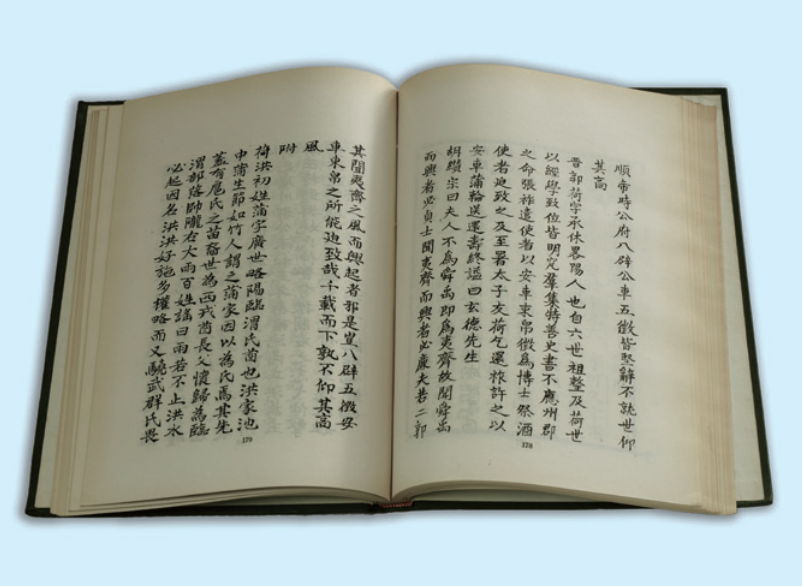 順帝時公府八辟公車五徵皆堅辭不就世仰
其高
晋郭荷字承休畧陽人也自六世祖整及荷世
以經學致位皆明究羣集特善史書不應州郡
之命張祚遣使者以安車束帛徵為博士祭酒
使者迫致之及至署太子友荷乞還祚許之以
安車蒲輪送還壽終謚曰玄德先生
胡纘宗曰夫人不為舜禹即為夷齊故聞舜禹
而興者必貞士聞夷齊而興者必廉夫若二郭
378
其聞夷齊之風而興起者邪是豈八辟五徵安
車束帛之所能迫致哉千載而下孰不仰其高
風
附
苻洪初姓蒲字廣世略陽臨渭氐酋也洪家池
中蒲生節如竹人謂之蒲家因以為氏焉其先
蓋有扈氏之苗裔世為西戎酋長父懷歸為臨
渭部落帥隴右大雨百姓謠曰雨若不止洪水
必起因名洪洪好施多權略而又驍武群氐畏
379